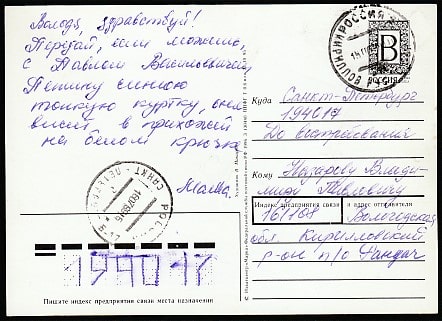 Володя, здравствуй!
Передай, если можешь
с Павлом Васильевичем
Петину синюю
тонкую куртку, она
висит в прихожей
на белом крючке
Мама.
РОССИЯ
В
Куда Санкт-Петербург
194017
До востребования
Кому Назарову Влади-
миру Павловичу
Индекс предприятия связи и адрес отправителя
161108 Вологодская
обл. Кирилловский
р-он п/о
САНКТ-ПЕТЕРБУРГ
РОССИЯ
194017
Пишите индекс предприятия связи места назначения